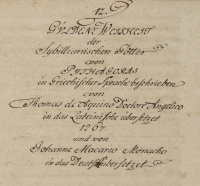 12.
GÜLDENE WEISHEIT
der
Sybillinischen Götter
von
PYTHAGORAS
in Griechischer Sprache beschrieben
von
Thomas de Aquino Doctore Angelico
in das Lateinische übersetzet
1267
und von
Johanne Macario
in das Deutsch übersetzet